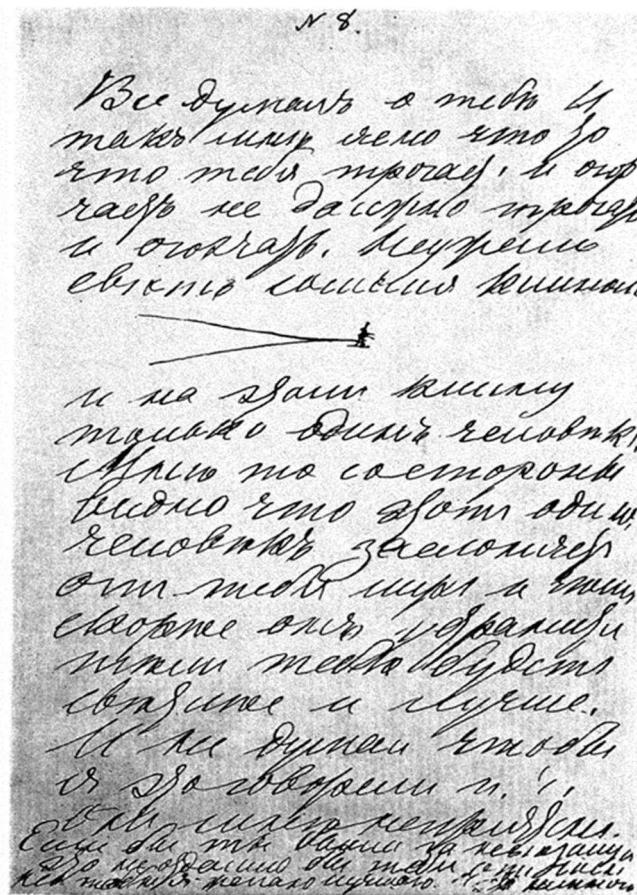 N 8.
Все думалъ о тебѣ и
такъ мнѣ ясно что то
что тебя трогаетъ и огор
чаетъ не должно трогать
и огорчать. Неужели
свѣтъ сошелся клиномъ
и на этомъ клину
только одинъ человѣкъ.
Мнѣ то со стороны
видно что этотъ одинъ
человѣкъ заслоняетъ
отъ тебя міръ и чѣмъ
скорѣе онъ
тѣмъ тебѣ будетъ
свѣтлѣе и лучше.
И не думай чтобы
я это говорилъ п. ч.
онъ мнѣ
Если бы ты
это бы